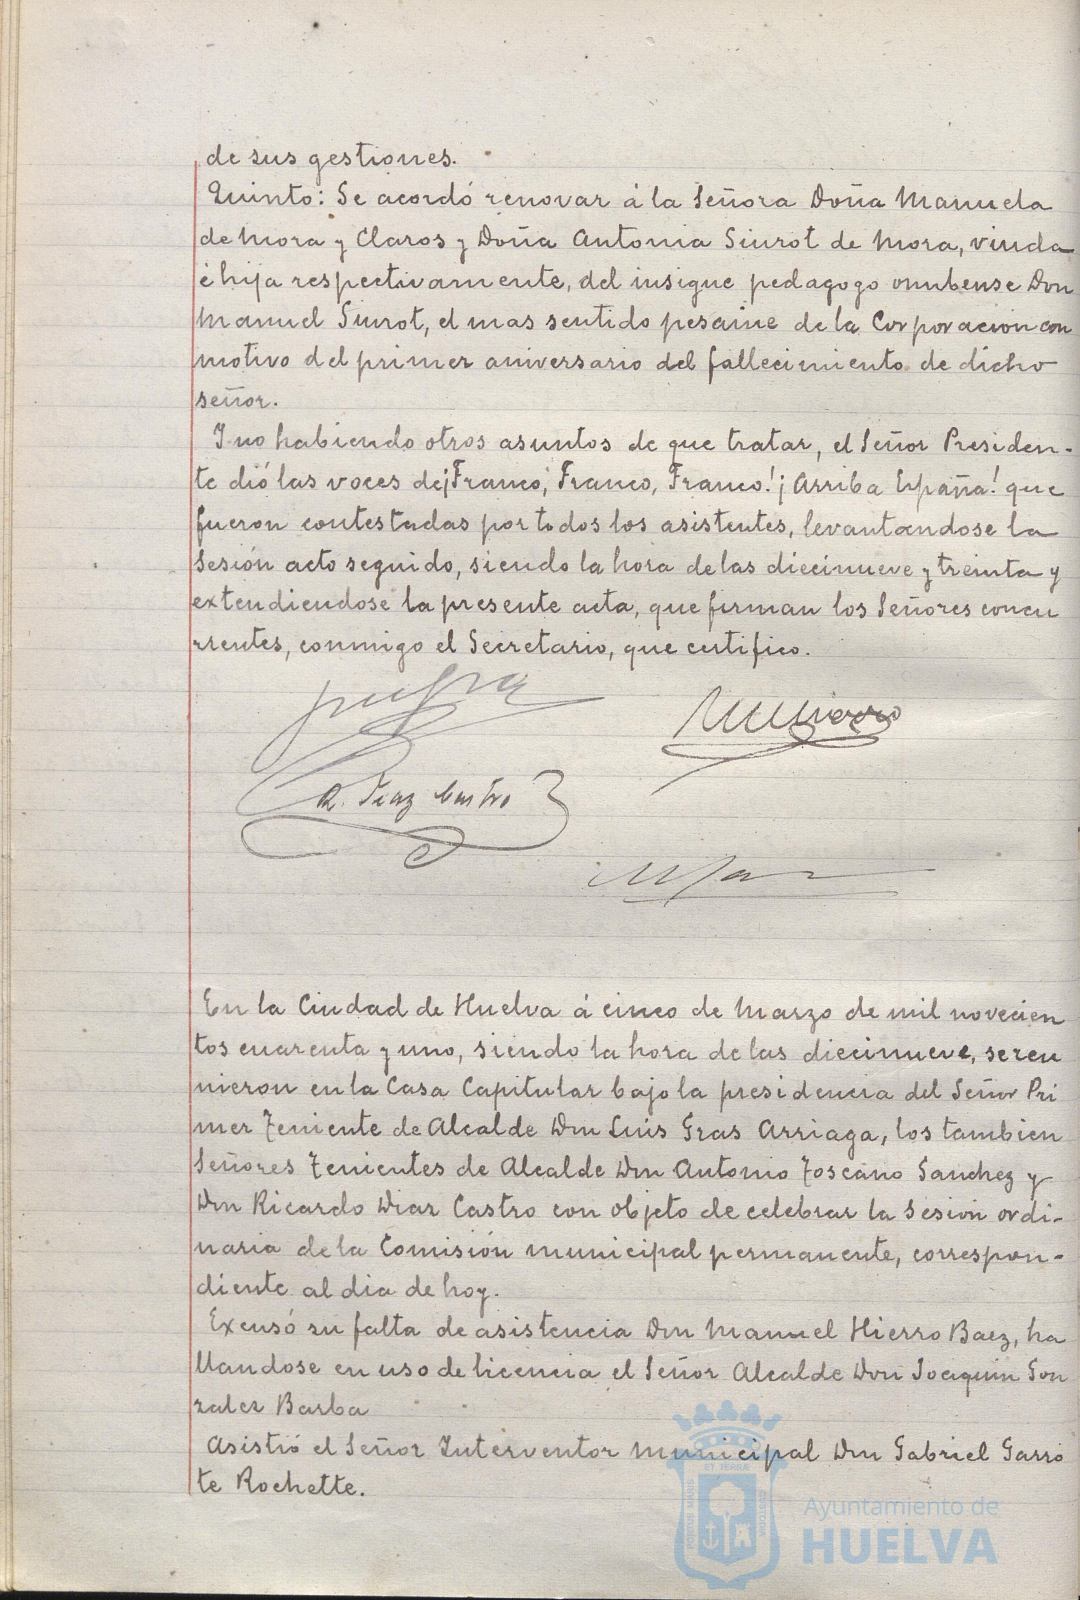 de sus gestiones.
Quinto: Se acordó renovar á la Señora Doña Manuela
de Mora y Claros y Doña Antonia Siurot de Mora, viuda
é hija respectivamente, del insigne pedagogo onubense Don
Manuel Siurot, el mas sentido pesame de la Corporacion con
motivo del primer aniversario del fallecimiento de dicho
señor.
Y no habiendo otros asuntos de que tratar, el Señor Presiden-
te dió las voces de ¡Franco, Franco, Franco! ¡Arriba España! que
fueron contestadas por todos los asistentes, levantandose la
Sesión acto seguido, siendo la hora de las diecinueve y treinta y
extendiendose la presente acta, que firman los Señores concu
rrentes, conmigo el Secretario, que certifico.
R. Diaz Castro
En la Ciudad de Huelva á cinco de Marzo de mil novecien
tos cuarenta y uno, siendo la hora de las diecinueve, se reu
nieron en la Casa Capitular bajo la presidencia del Señor Pri
mer Teniente de Alcalde Don Luis Gras Arriaga, los tambien
Señores Tenientes de Alcalde Don Antonio Toscano Sanchez y
Don Ricardo Diaz Castro con objeto de celebrar la Sesion ordi-
naria de la Comisión municipal permanente, correspon-
diente al dia de hoy.
Excusó su falta de asistencia Don Manuel Hierro Baez, ha
llandose en uso de licencia el Señor Alcalde Don Joaquin Gon
zalez Barba
Asistió el Señor Interventor municipal Don Gabriel Garro
te Rochette.
PORTUS MARIS ET TERRÆ CUSTODIA
Ayuntamiento de
HUELVA